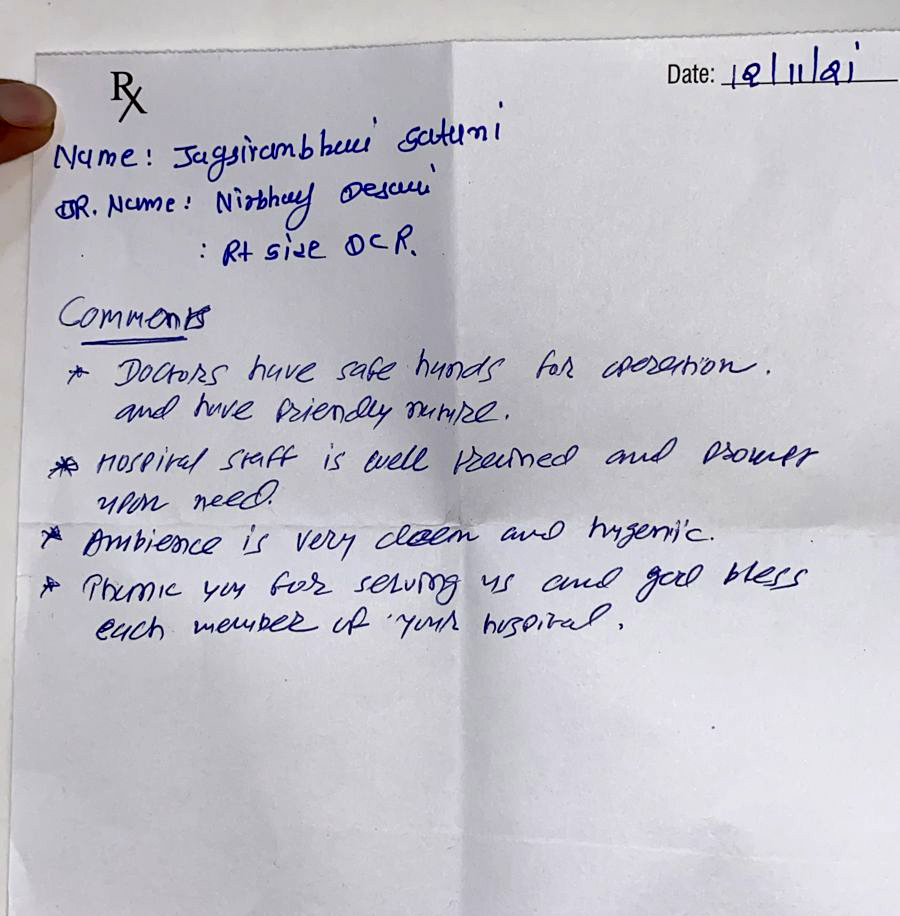 Rx
Date: 12/11/21
Name: Jagsirambhai Satuni
DR. Name: Nirbhay Desai
: Rt size DCR.
Comments
* Doctors have safe hands for operation.
and have friendly nature.
* Hospital staff is well trained and prompt
upon need.
* Ambience is very clean and hygenic.
* Thank you for serving us and god bless
each member of your hospital.